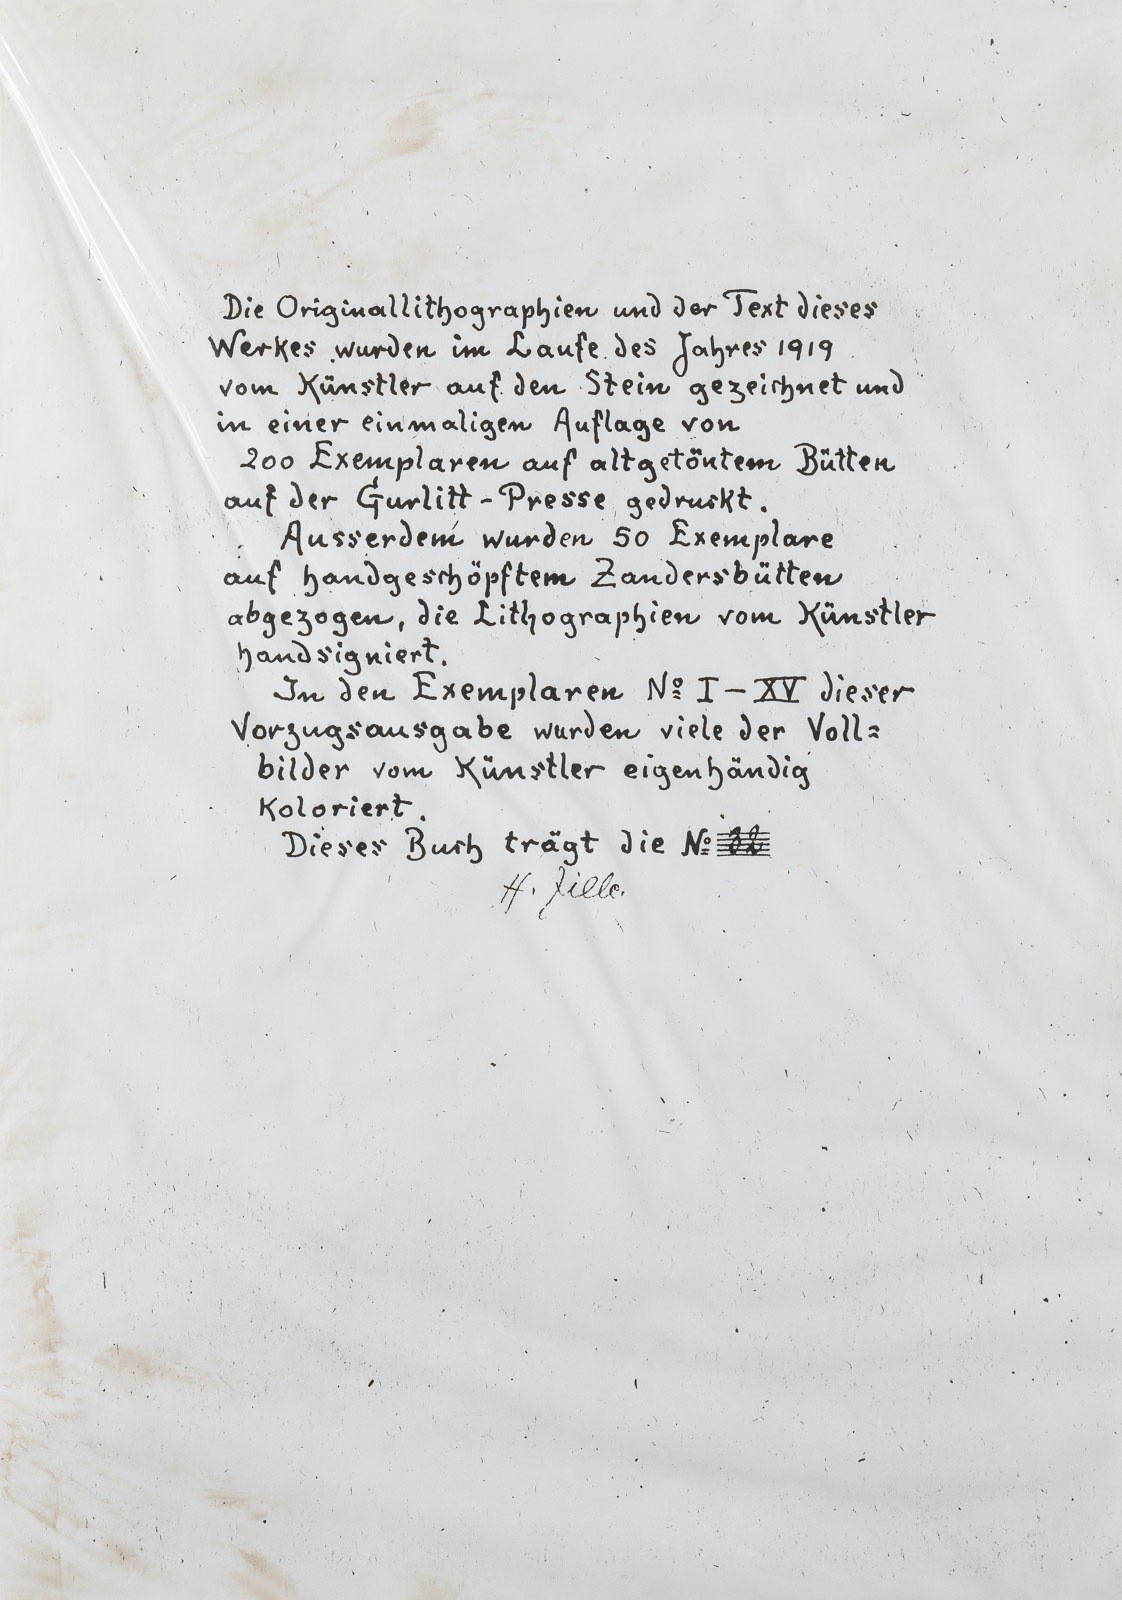 Die Originallithographien und der Text dieses
Werkes wurden im Laufe des Jahres 1919
vom Künstler auf den Stein gezeichnet und
in einer einmaligen Auflage von
200 Exemplaren auf altgetöntem Bütten
auf der Gurlitt-Presse gedruckt.
Ausserdem wurden 50 Exemplare
auf handgeschöpftem Zandersbütten
abgezogen, die Lithographien vom Künstler
handsigniert.
In den Exemplaren No I – XV dieser
Vorzugsausgabe wurden viele der Voll=
bilder vom Künstler eigenhändig
koloriert.
Dieses Buch trägt die No
H. Zille.